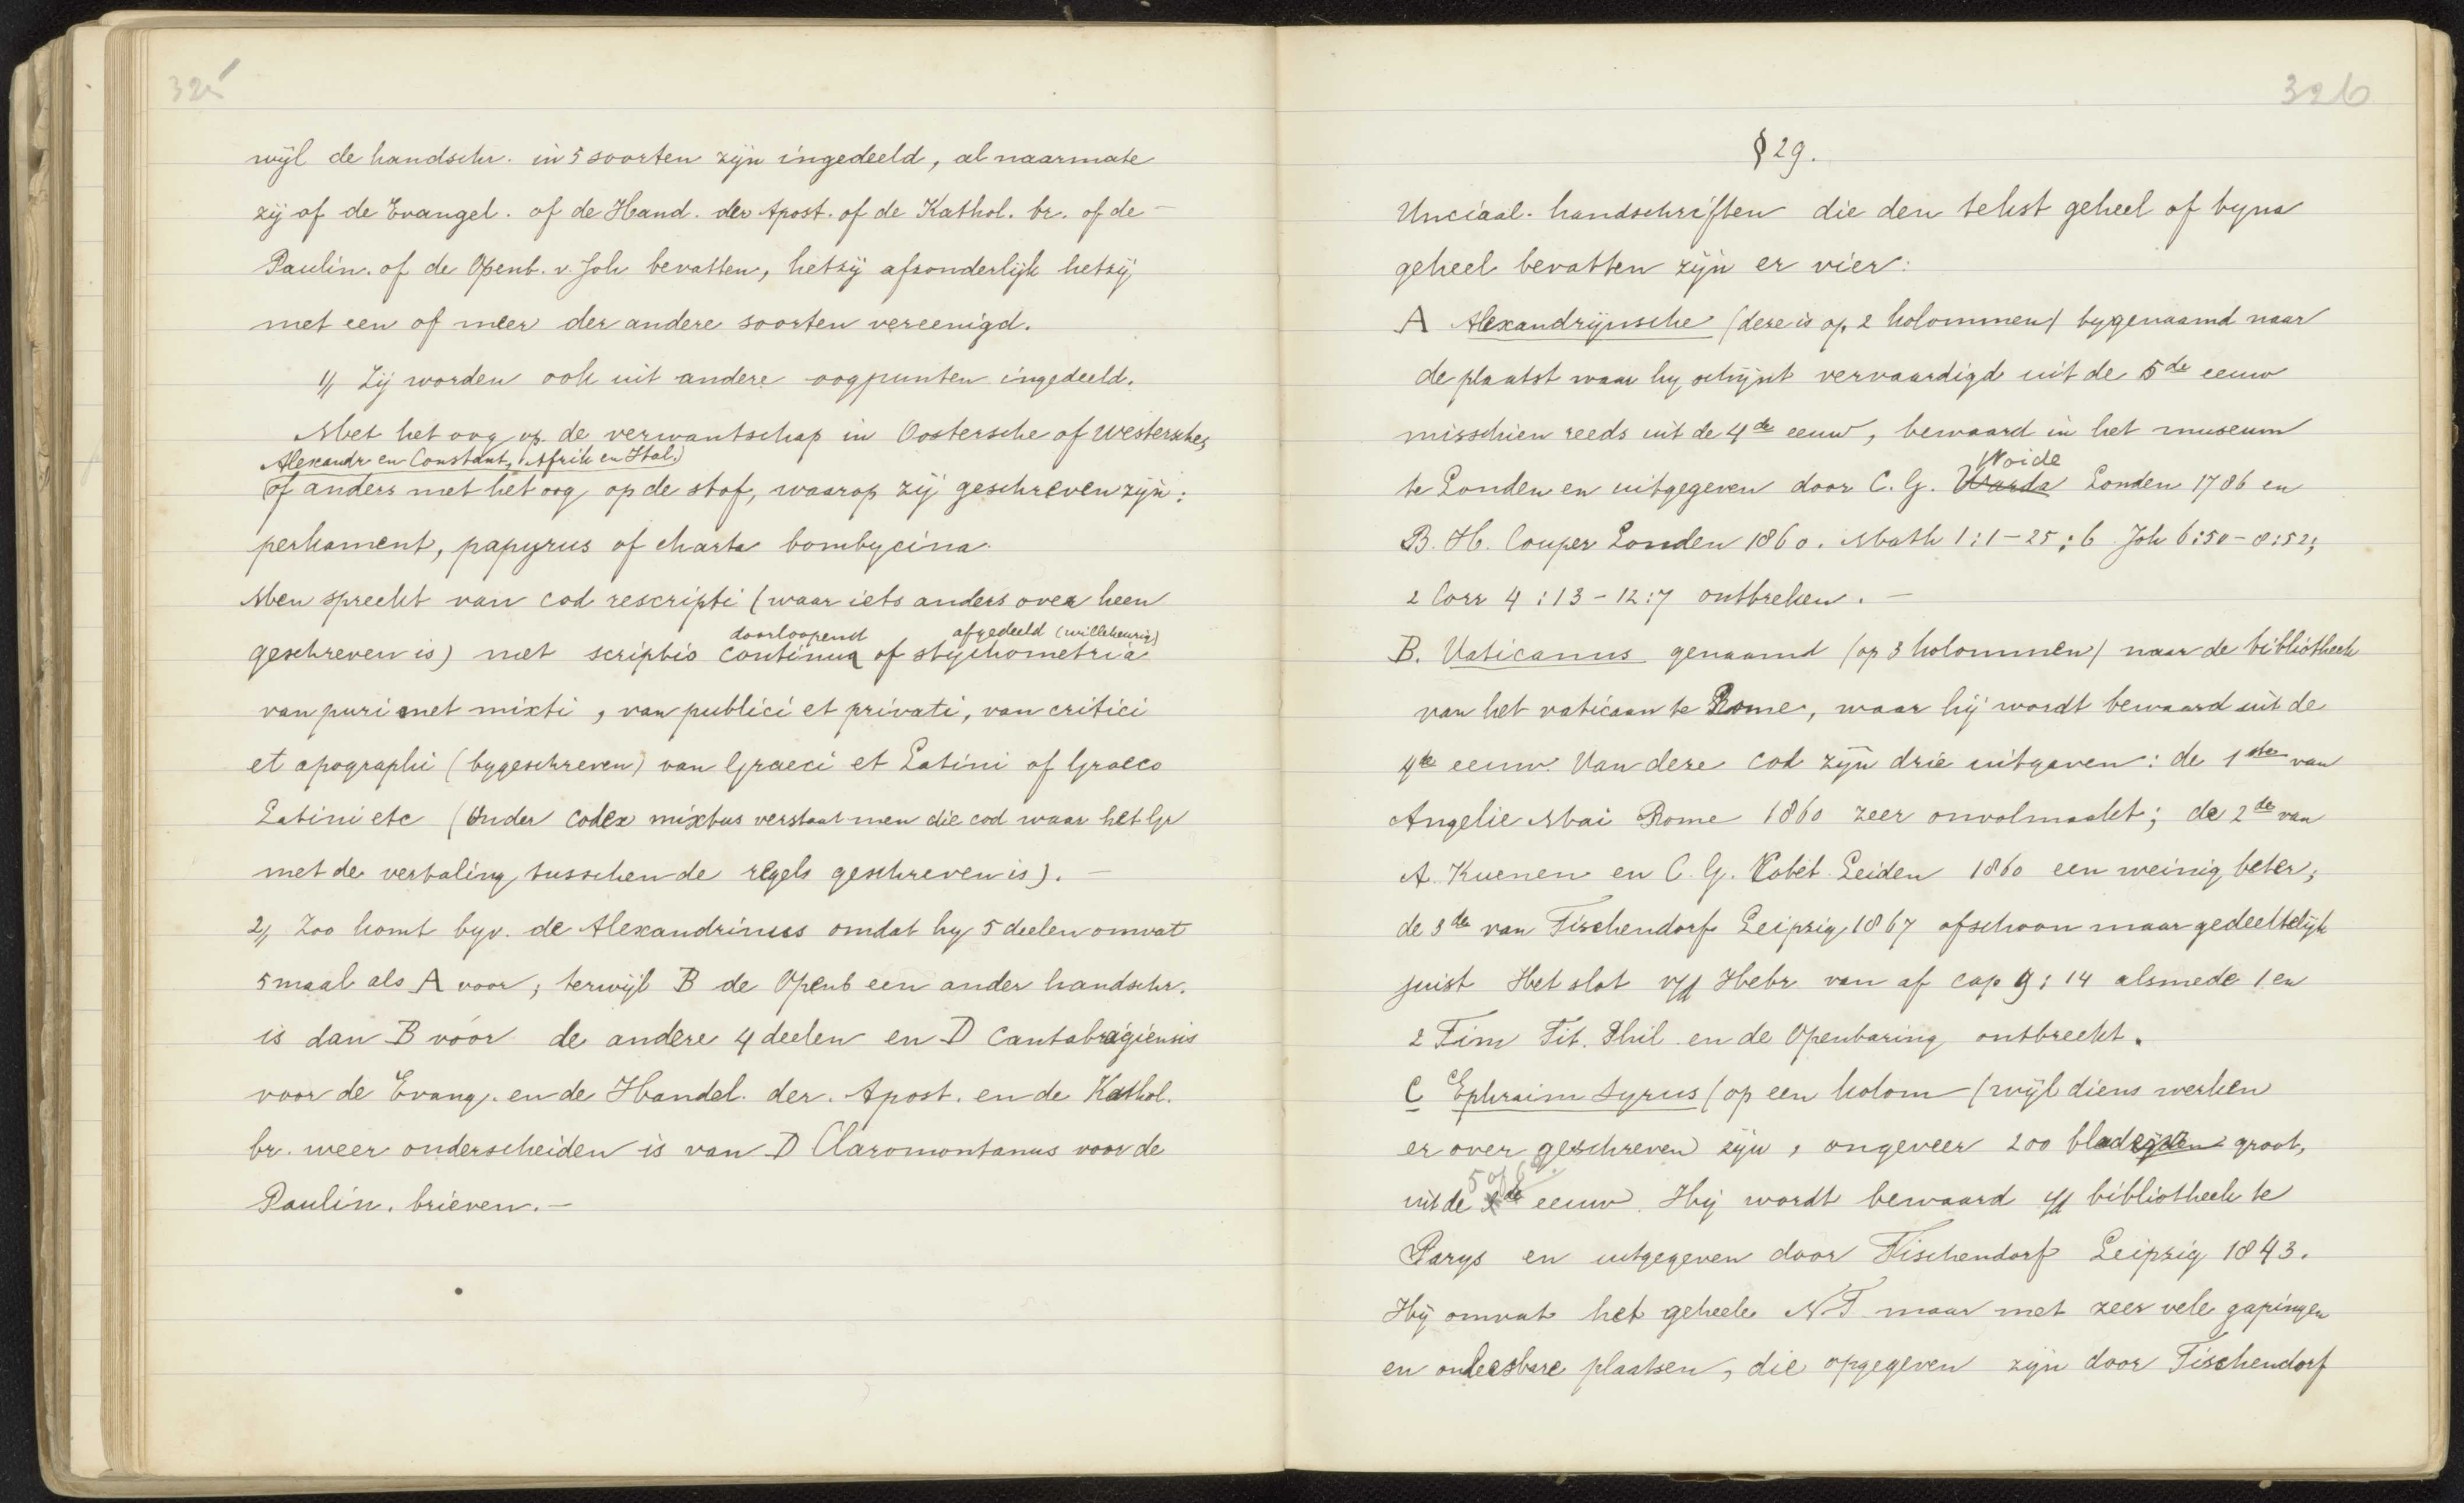 325
wijl de handschr. in 5 soorten zijn ingedeeld, al naarmate
zij of de Evangel. of de Hand. der Apost. of de Kathol. br. of de
Paulin. of de Openb. v. Joh bevatten, hetzij afzonderlijk hetzij
met een of meer der andere soorten vereenigd.
1) Zij worden ook uit andere oogpunten ingedeeld.
Met het oog op de verwantschap in Oostersche of Westersche,
Alexandr en Constant, Afrik en Ital.)
of anders met het oog op de stof, waarop zij geschreven zijn:
perkament, papyrus of charta bombycina.
Men spreekt van cod rescripti (waar iets anders over heen
doorloopend afgedeeld (willekeurig)
geschreven is) met scriptio continua of stychometria
van puri met mixti, van publici et privati, van critici
et apographi (bygeschreven) van Graeci et Latini of Graeco
Latini etc (Onder codex mixtus verstaat men die cod waar het Gr
met de vertaling tusschen de regels geschreven is). —
2) Zoo komt byv. de Alexandrinus omdat hy 5 deelen omvat
5 maal als A voor; terwijl B de Openb een ander handschr.
is dan B vóor de andere 4 deelen en D Cantabragiensis
voor de Evang. en de Handel. der. Apost. en de Kathol.
br. weer onderscheiden is van D Claromontanus voor de
Paulin. brieven. —
326
§ 29.
Unciaal. handschriften die den tekst geheel of byna
geheel bevatten zijn er vier:
A Alexandrijnsche (deze is op 2 kolommen) bygenaamd naar
de plaatst waar hy schijnt vervaardigd uit de 5de eeuw
misschien reeds uit de 4de eeuw, bewaard in het museum
Woide
te Londen en uitgegeven door C. G. Londen 1786 en
B. H. Couper Londen 1860. Math 1:1-25:6 Joh 6:50-8:52;
2 Corr 4:13-12:7 ontbreken. —
B. Vaticanus genaamd (op 3 kolommen) naar de bibliotheek
van het vaticaan te Rome, waar hij wordt bewaard uit de
4de eeuw. Van deze cod zijn drie uitgaven: de 1ste van
Angelie Mai Rome 1860 zeer onvolmaakt; de 2de van
A. Kuenen en C. G. Cobet Leiden 1860 een weinig beter;
de 3de van Tischendorf Leipzig 1867 ofschoon maar gedeeltelijk
juist Het slot v/d Hebr van af cap 9:14 alsmede 1 en
2 Tim Tit. Phil en de Openbaring ontbreekt.
C Ephraim Syrus (op een kolom (wijl diens werken
er over geschreven zijn, ongeveer 200 bladzijden groot,
5 of 6
uit de de eeuw. Hij wordt bewaard i/d bibliotheek te
Parys en uitgegeven door Tischendorf Leipzig 1843.
Hij omvat het geheele NT maar met zeer vele gapingen
en onleesbare plaatsen, die opgegeven zijn door Tischendorf